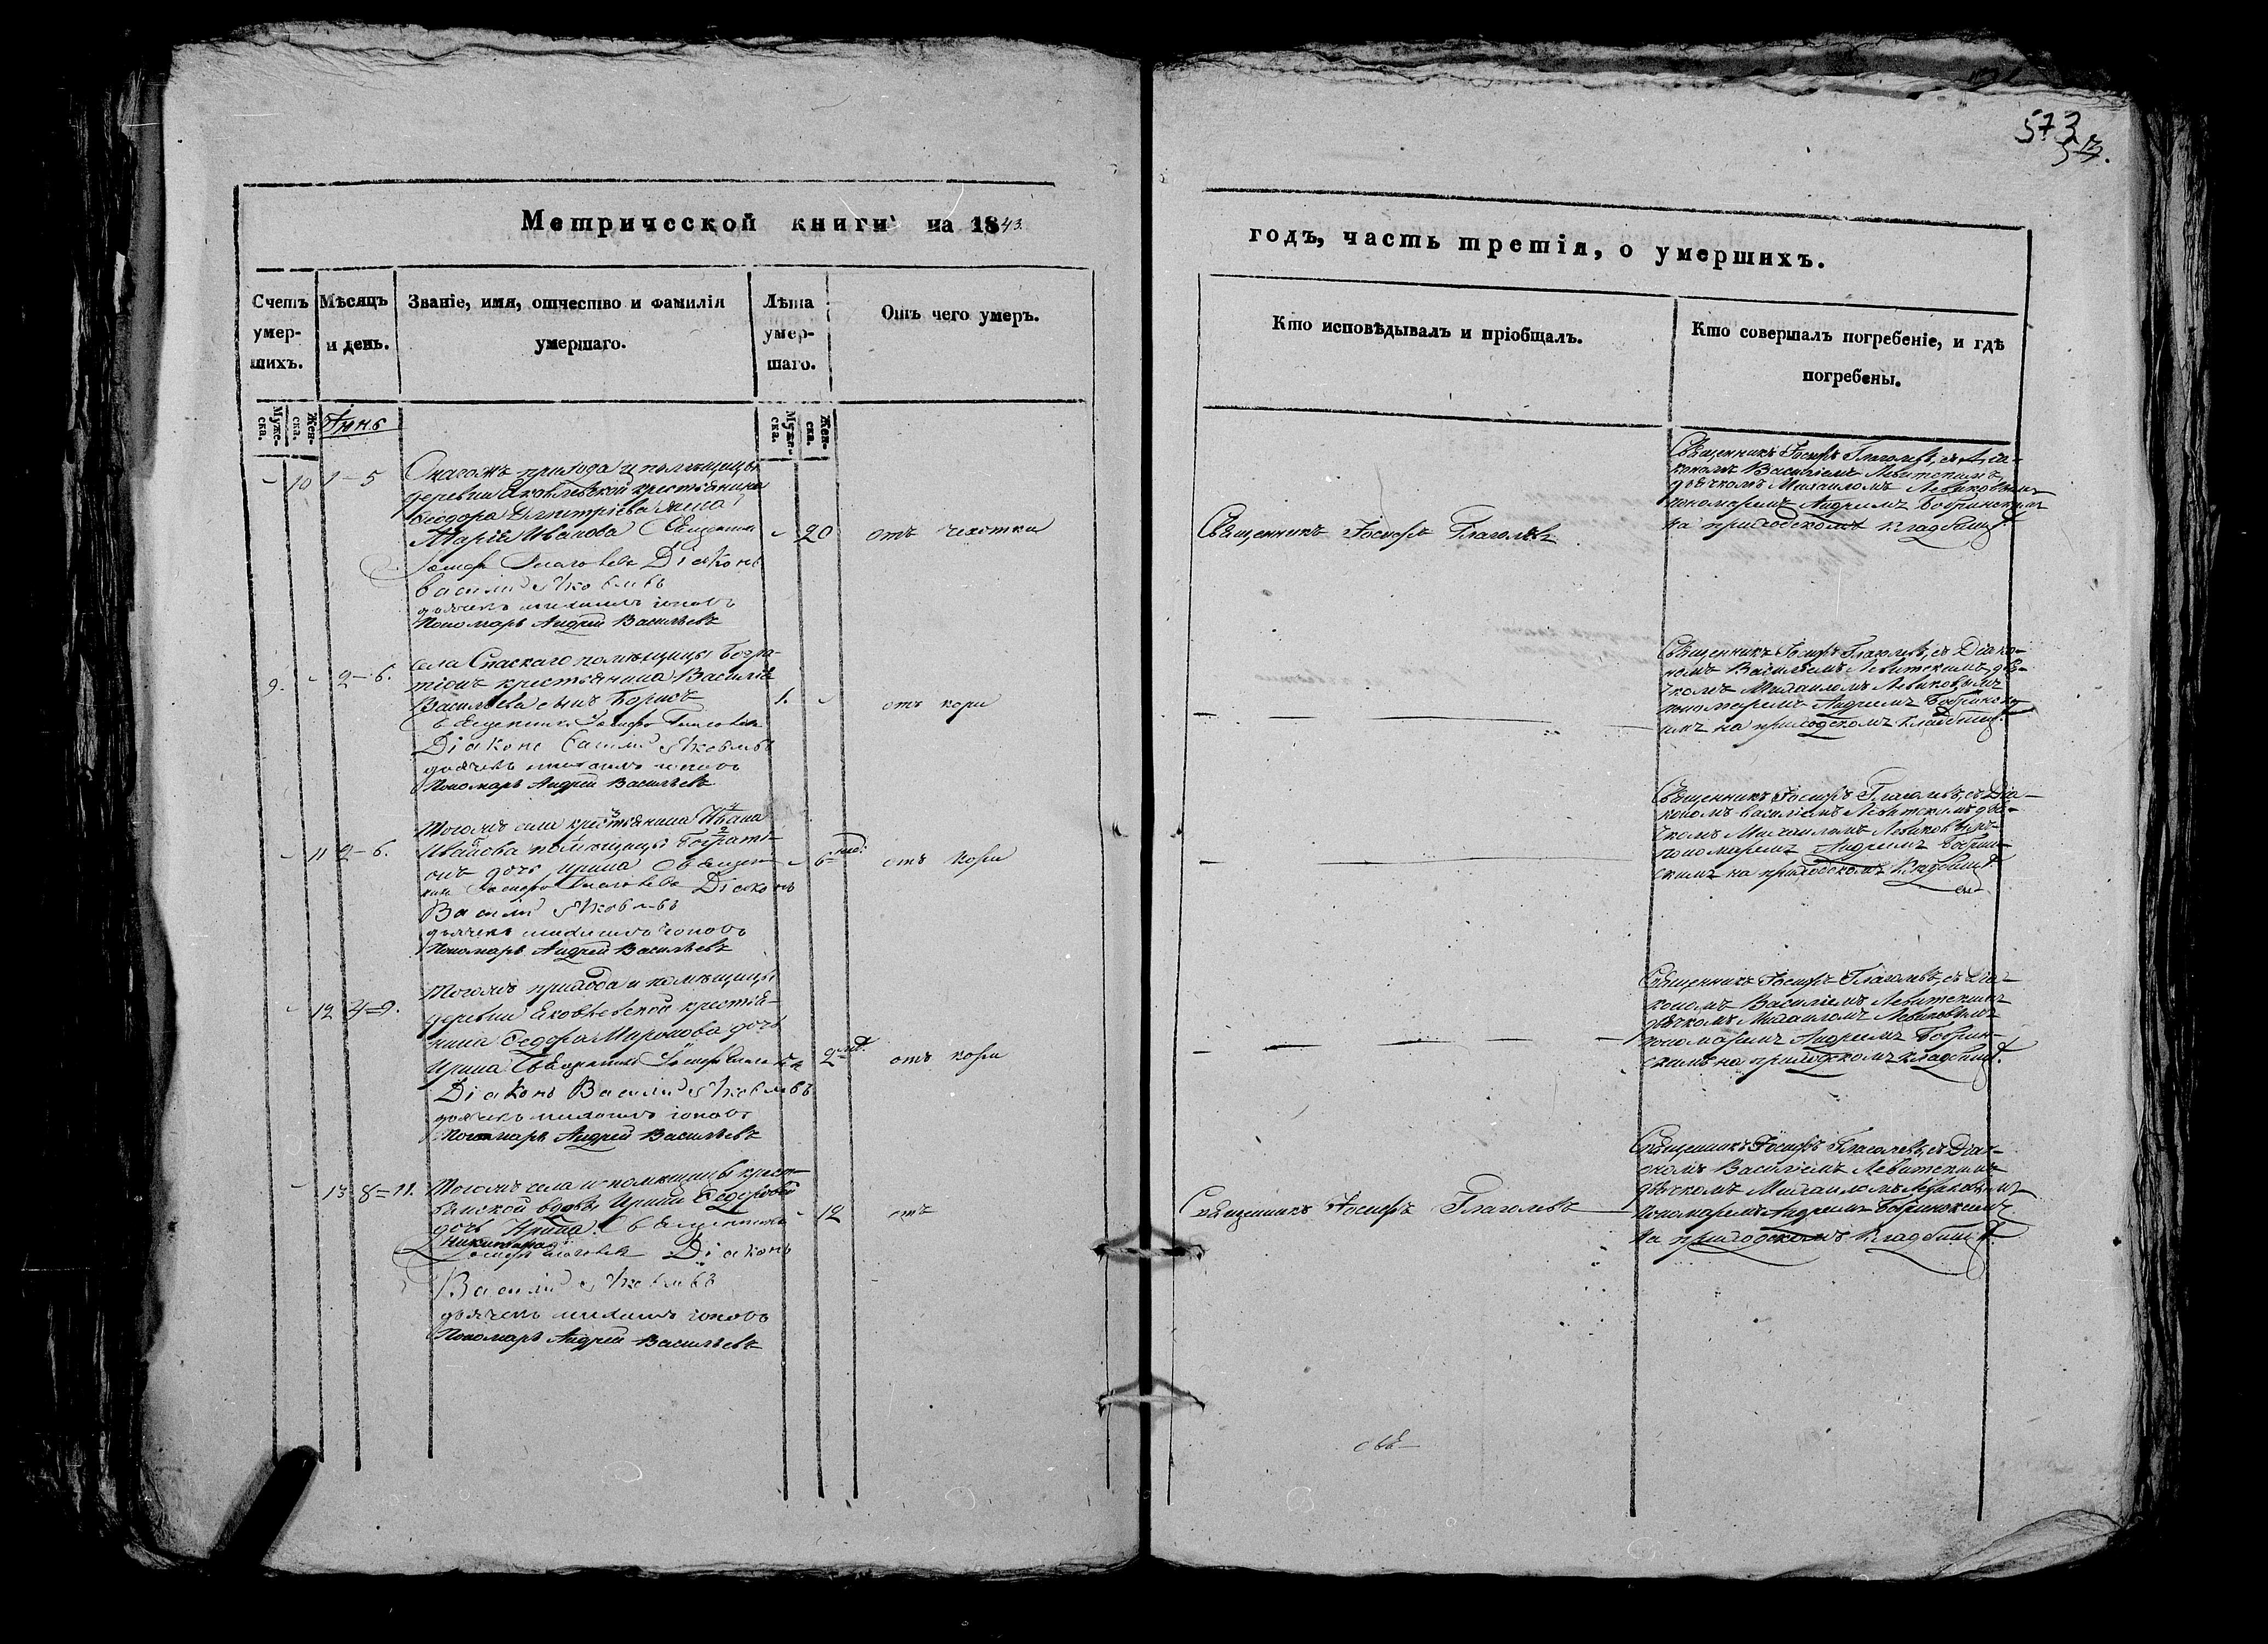 573
Метрической книги на 1843
годъ, часть третія, о умершихъ.
Счетъ умер-шихъ.
Мѣсяцъ и день.
Званіе, имя, отчество и фамилія умершаго.
Лѣта умер-шаго.
Отъ чего умеръ.
Кто исповѣдывалъ и пріобщалъ.
Кто совершалъ погребеніе, и гдѣ погребены.
Муже-ска.
Жен-ска.
Муже-ска.
Жен-ска.
Іюнь
10 1-5
прихода и помѣщицы
деревни Яковлевской крестьянина
Ѳеодора Дмитріева жена
Марія Иванова Священникъ
Іосифъ Глаголевъ Діаконъ
Василій Яковлевъ
дьячекъ Михаилъ Іоновъ
Пономарь Андрей Васильевъ
20
отъ чехотки
Священникъ Іосифъ Глаголевъ
Священникъ Іосифъ Глаголевъ, съ Діа-
кономъ Василіемъ Левитскимъ,
дьячкомъ Михаиломъ Левиковымъ
пономаремъ Андреемъ Бобринскимъ
на приходскомъ кладбищѣ.
9. 2-6.
села Спаскаго помѣщицы Багра-
тіонъ крестьянина Василія
Васильева сынъ Борисъ
Священникъ Іосифъ Глаголевъ
Діаконъ Василій Яковлевъ
дьячекъ Михаилъ Іоновъ
Пономарь Андрей Васильевъ
1.
отъ кори
Священникъ Іосифъ Глаголевъ, съ Діако-
номъ Василіемъ Левитскимъ, дья-
чкомъ Михаиломъ Левиковымъ
пономаремъ Андреемъ Бобринск-
имъ на приходскомъ кладбищѣ.
11 2-6.
Тогожъ села крестьянина Ивана
Иванова помѣщицы Баграті-
онъ дочь Ирина Священ-
никъ Іосифъ Глаголевъ Діаконъ
Василій Яковлевъ
дьячекъ Михаилъ Іоновъ
Пономарь Андрей Васильевъ
6 нед:
отъ кори
Священникъ Іосифъ Глаголевъ, съ Діа-
кономъ Василіемъ Левитскимъ дья-
чкомъ Михаиломъ Левиковымъ
пономаремъ Андреемъ Бобрин-
скимъ на приходскомъ кладбищѣ.
12 4=9.
Тогожъ прихода и помѣщицы
деревни Яковлевской крестья-
нина Ѳедора Миронова дочь
Ирина Священникъ Іосифъ Глаголевъ
Діаконъ Василій Яковлевъ
дьячекъ Михаилъ Іоновъ
Пономарь Андрей Васильевъ
2
отъ кори
Священникъ Іосифъ Глаголевъ, съ Діа-
кономъ Василіемъ Левитскимъ
дьячкомъ Михаиломъ Левиковымъ
пономаремъ Андреемъ Бобрин-
скимъ на приходскомъ кладбищѣ.
13 8=11.
Тогожъ села и помѣщицы крест-
ьянской вдовы Ирины Ѳедоровой
дочь Священникъ
Іосифъ Глаголевъ Діаконъ
Василій Яковлевъ
дьячекъ Михаилъ Іоновъ
Пономарь Андрей Васильевъ
12
отъ
Священникъ Іосифъ Глаголевъ
Священникъ Іосифъ Глаголевъ, съ Діа-
кономъ Василіемъ Левитскимъ
дьячкомъ Михаиломъ Левиковымъ
пономаремъ Андреемъ Бобринскимъ
на приходскомъ кладбищѣ.